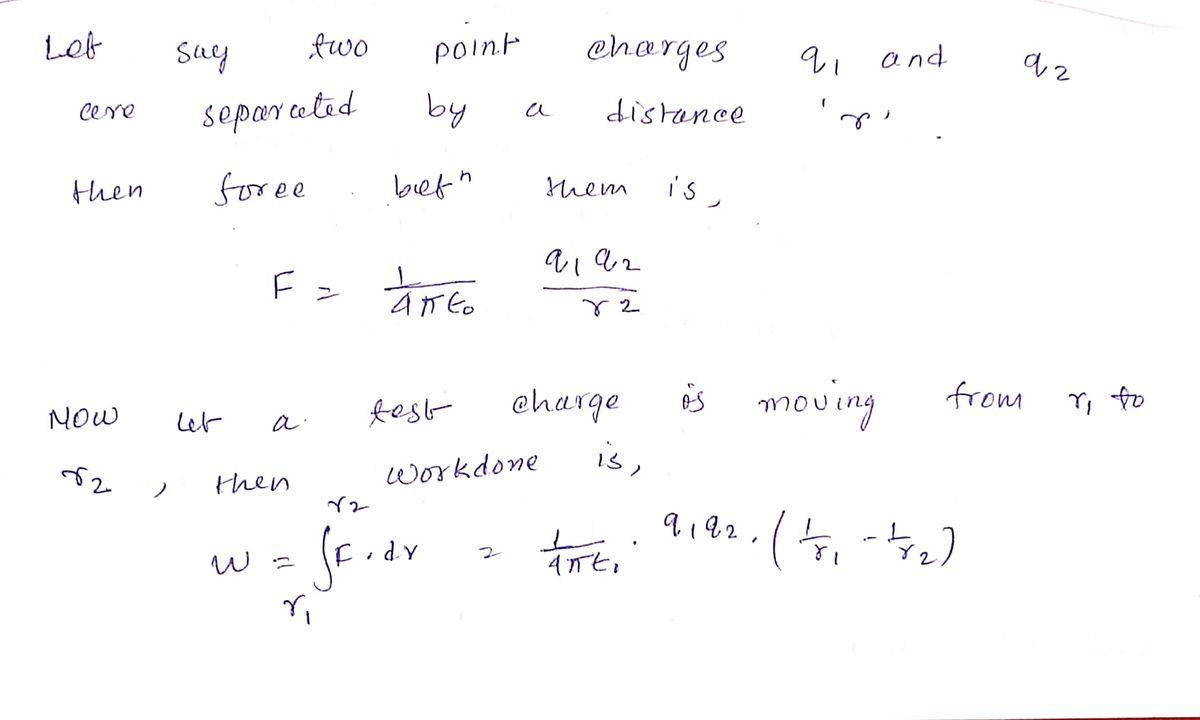 Let say two point charges q₁ and q₂
are separated by a distance 'r'.
then force betⁿ them is,
F = 1/4πϵ₀ q₁q₂/r²
Now let a test charge is moving from r₁ to
r₂, then workdone is,
W = ∫_{r₁}^{r₂} F.dr = 1/4πϵ₀ . q₁q₂. (1/r₁ - 1/r₂)